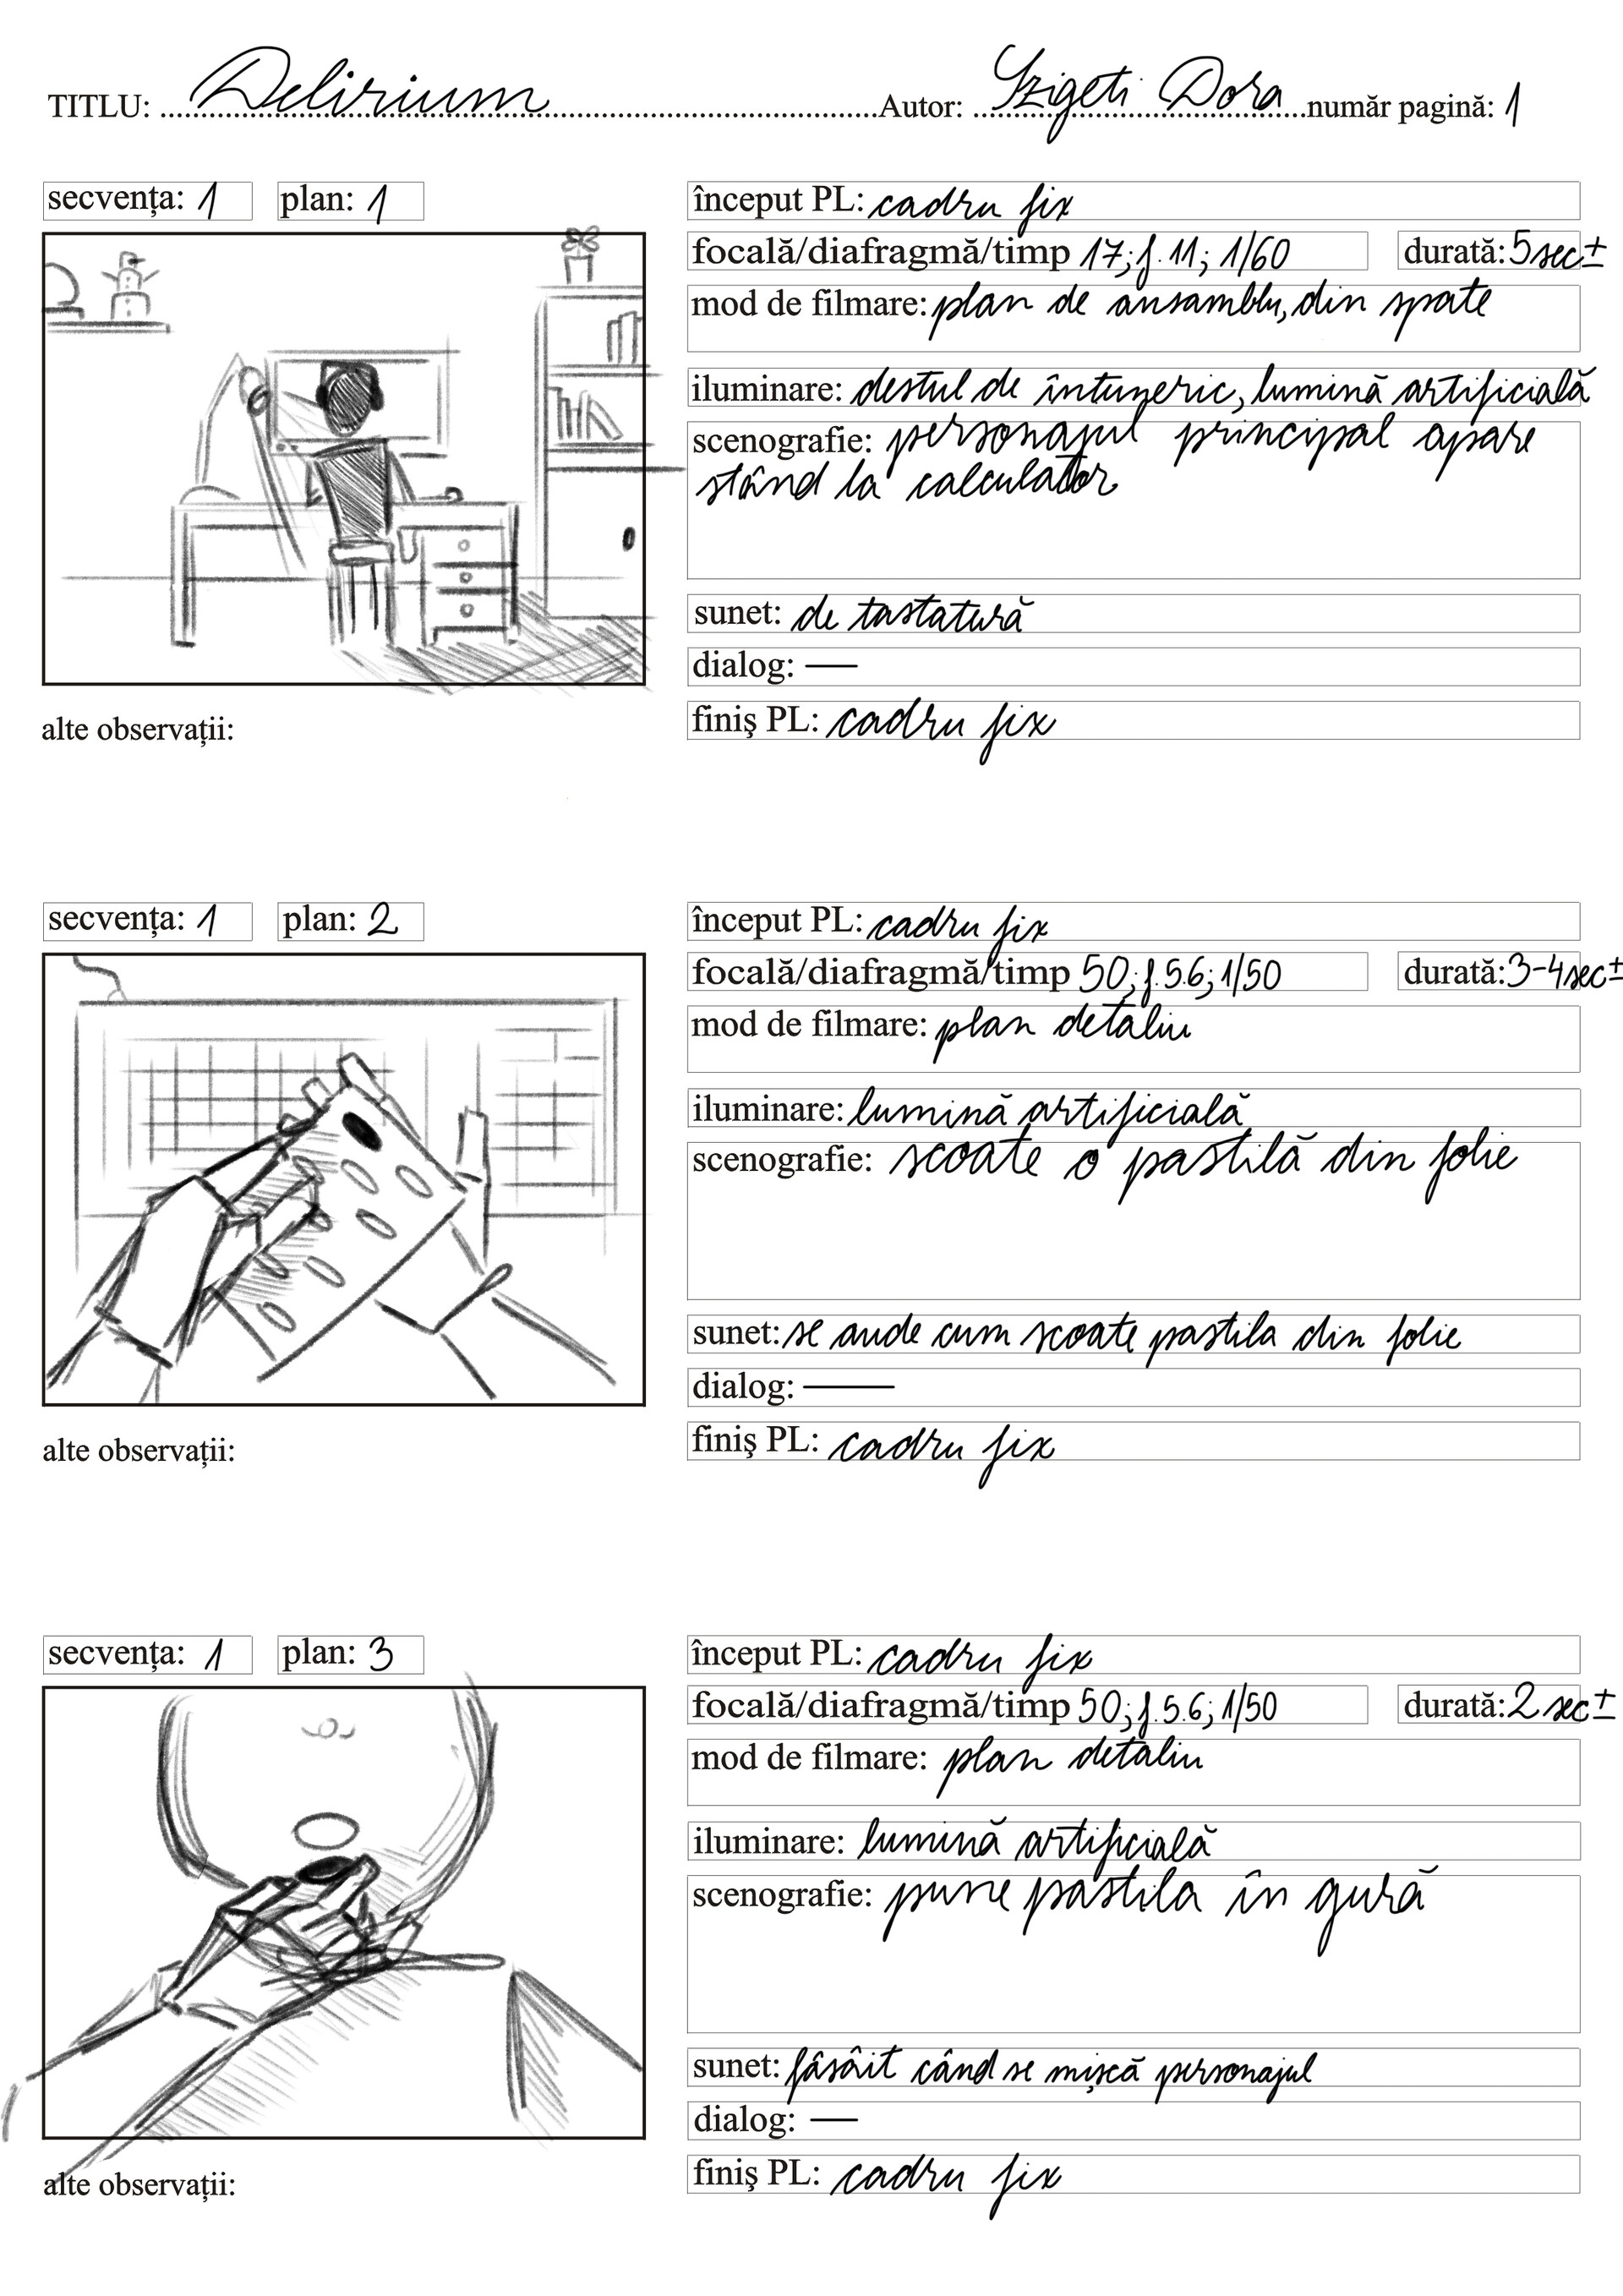 TITLU: Delirium Autor: Szigeti Dora număr pagină: 1
secvența: 1 plan: 1
început PL: cadru fix
focală/diafragmă/timp 17; f.11; 1/60 durată: 5sec±
mod de filmare: plan de ansamblu, din spate
iluminare: destul de întuneric, lumină artificială
scenografie: personajul principal apare
stând la calculator
sunet: de tastatură
dialog: —
finiş PL: cadru fix
alte observații:
secvența: 1 plan: 2
început PL: cadru fix
focală/diafragmă/timp 50; f.5.6; 1/50 durată: 3-4sec±
mod de filmare: plan detaliu
iluminare: lumină artificială
scenografie: scoate o pastilă din folie
sunet: se aude cum scoate pastila din folie
dialog: —
finiş PL: cadru fix
alte observații:
secvența: 1 plan: 3
început PL: cadru fix
focală/diafragmă/timp 50; f.5.6; 1/50 durată: 2 sec±
mod de filmare: plan detaliu
iluminare: lumină artificială
scenografie: pune pastila în gură
sunet: fâsâit când se mișcă personajul
dialog: —
finiş PL: cadru fix
alte observații: